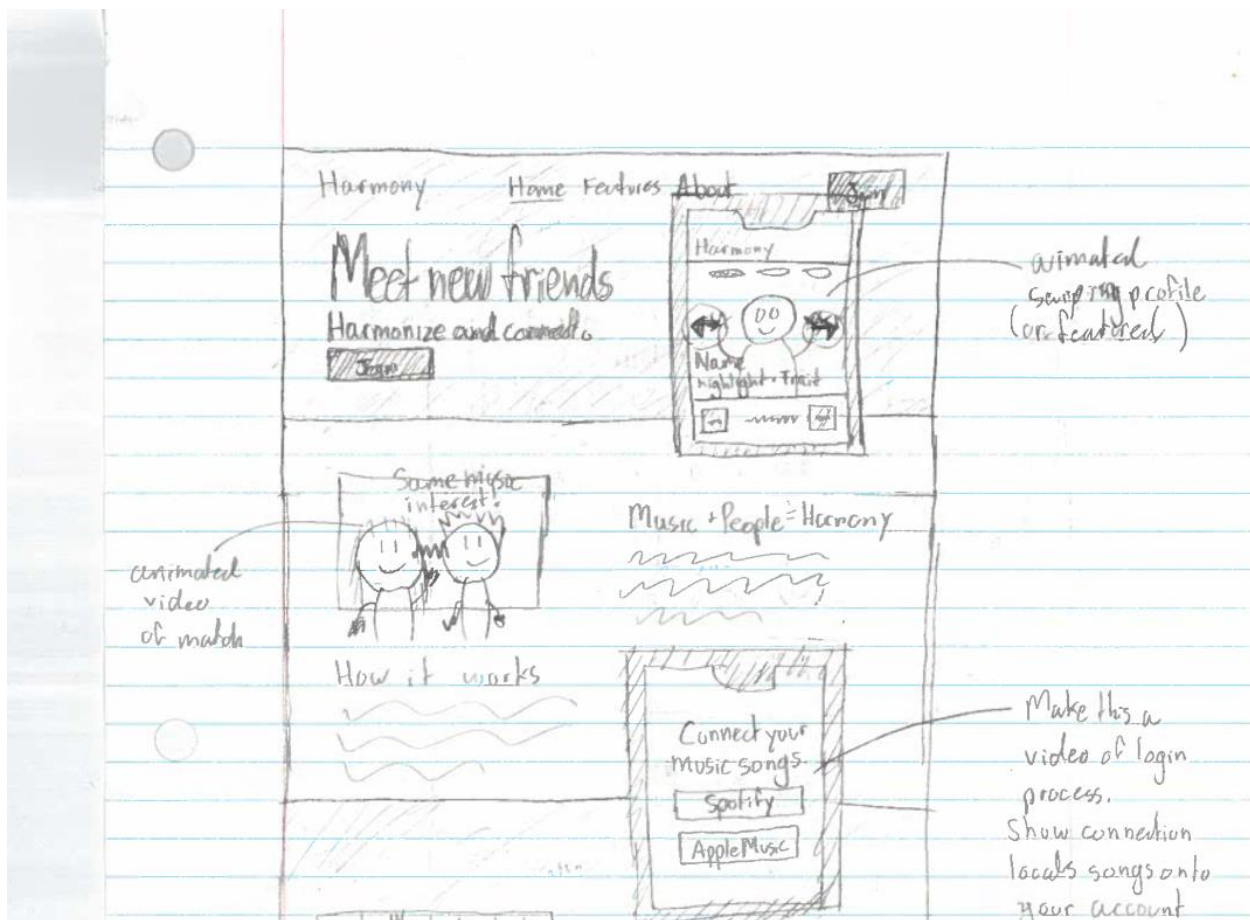 Harmony Home Features About Join
Meet new friends
Harmonize and connect.
Join
Harmony
Name
highlight • Trait
animated
swiping profile
(or featured)
Same music
interest!
animated
video
of match
Music + People = Harmony
How it works
Connect your
music songs.
Spotify
Apple Music
Make this a
video of login
process.
Show connection
locals songs onto
your account